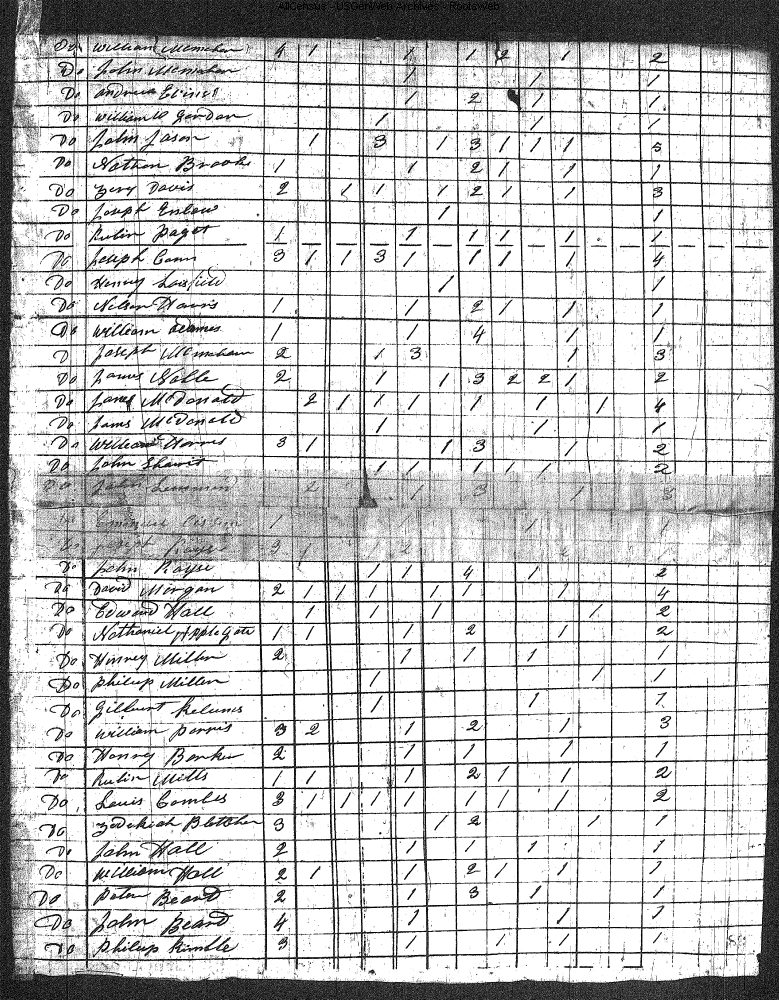 AllCensus - USGenWeb Archives - Rootsweb
Do William Mcmahan 4 1 1 1 2 1 2
Do John Mcmahan 1 1 1
Do Andrew 1 2 1 1
Do William Gordan 1 1 1
Do John Jason 1 3 1 3 1 1 1 5
Do Nathan Brooks 1 1 2 1 1 1
Do Davis 2 1 1 1 2 1 1 3
Do Joseph Enlow 1 1
Do Rubin Paget 1 1 1 1 1 1
Do Joseph 3 1 1 3 1 1 1 1 4
Do Henry 1 1
Do Nelson Harris 1 1 2 1 1 1
Do William Adames 1 1 4 1 1
D Joseph Mcmahan 2 1 3 1 3
Do James Noble 2 1 1 3 2 2 1 2
Do James McDonald 2 1 1 1 1 1 1 4
Do James McDonald 1 1 1
Do William Harris 3 1 1 3 1 2
Do John 1 1 1 1 1 2
Do John 2 1 3 1 3
Do 1 1 1 1
3 1 1 2
Do John Rayse 1 1 4 1 2
Do David Morgan 2 1 1 1 1 1 1 4
Do Edward Hall 1 1 1 1 2
Do Nathaniel Applegate 1 1 1 2 1 2
Do Hinrey Miller 2 1 1 1 1
Do Philip Miller 1 1 1
Do Gilburt 1 1 1
Do William Parris 3 2 1 2 1 3
Do Henrey Barker 2 1 1 1 1
Do Rubin Mills 1 1 1 2 1 1 2
Do Louis Combes 3 1 1 1 1 1 1 1 2
Do Zedekiah Bletcher 3 1 2 1 1
Do John Hall 2 1 1 1 1
Do William Hall 2 1 1 2 1 1 1
Do Peter Beard 2 1 3 1 1
Do John Beard 4 1 1 1
Do Philip Kimble 3 1 1 1 1